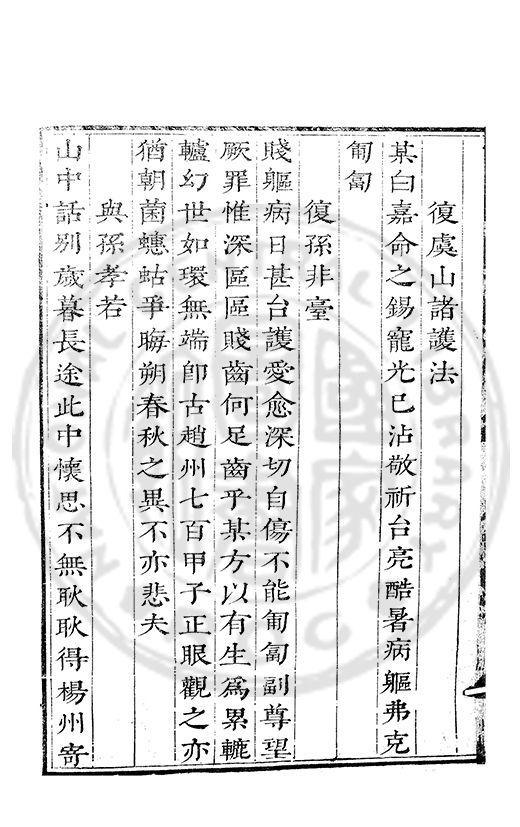 復虞山諸護法
某白嘉命之錫寵光已沾敬祈台亮酷暑病軀弗克
匍匐
復孫非臺
賤軀病日甚台護愛愈深切自傷不能匍匐副尊望
厥罪惟深區區賤齒何足齒乎某方以有生為累轆
轤幻世如環無端卽古趙州七百甲子正眼觀之亦
猶朝菌蟪蛄爭晦朔春秋之異不亦悲夫
與孫孝若
山中話別歲暮長途此中懷思不無耿耿得楊州寄